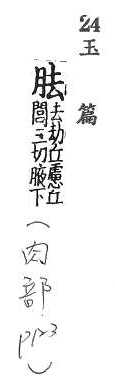 24
玉篇
胠
去劫丘慮丘
閭三切腋下
(肉部 p123)